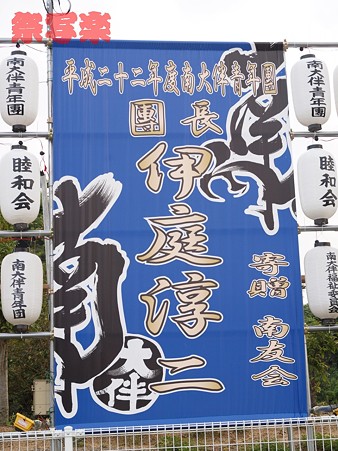 祭写楽
平成二十二年度南大伴青年團
團長
伊庭淳二
寄贈 南友会
南
南
大伴
南大伴青年團
睦和会
南大伴青年團
南大伴青年團
睦和会
南大伴福祉委員会